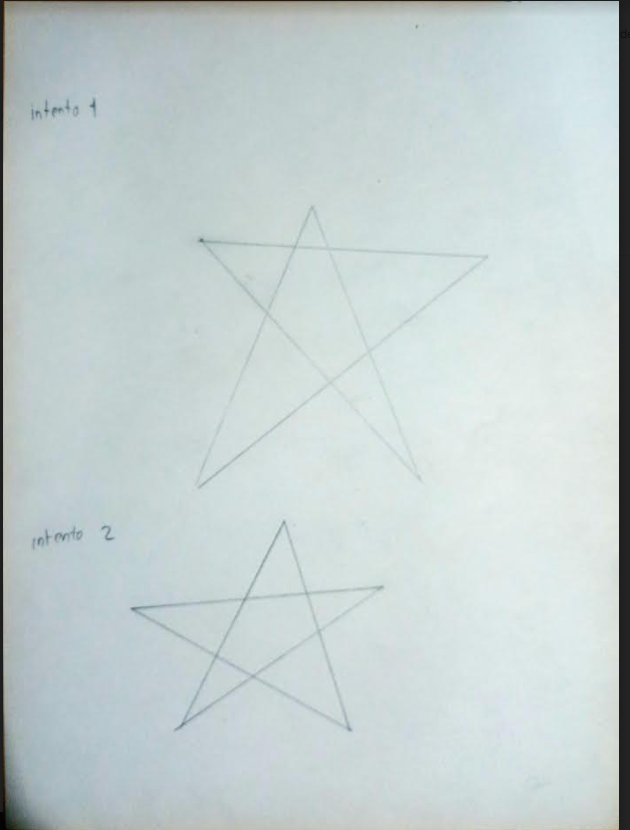 intento 1
intento 2